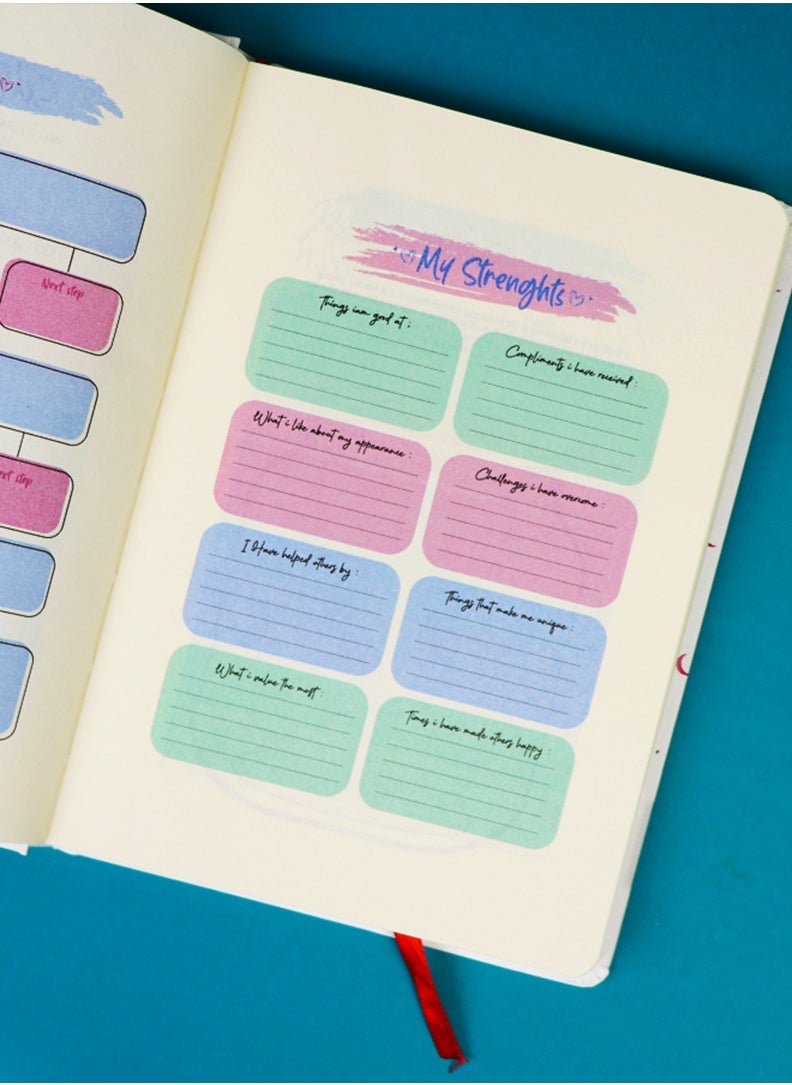 Next step
Next step
My Strenghts
Things iam good at :
Compliments i have received :
What i like about my appearance :
Challenges i have overcome :
I Have helped others by :
Things that make me unique :
What i value the most :
Times i have made others happy :